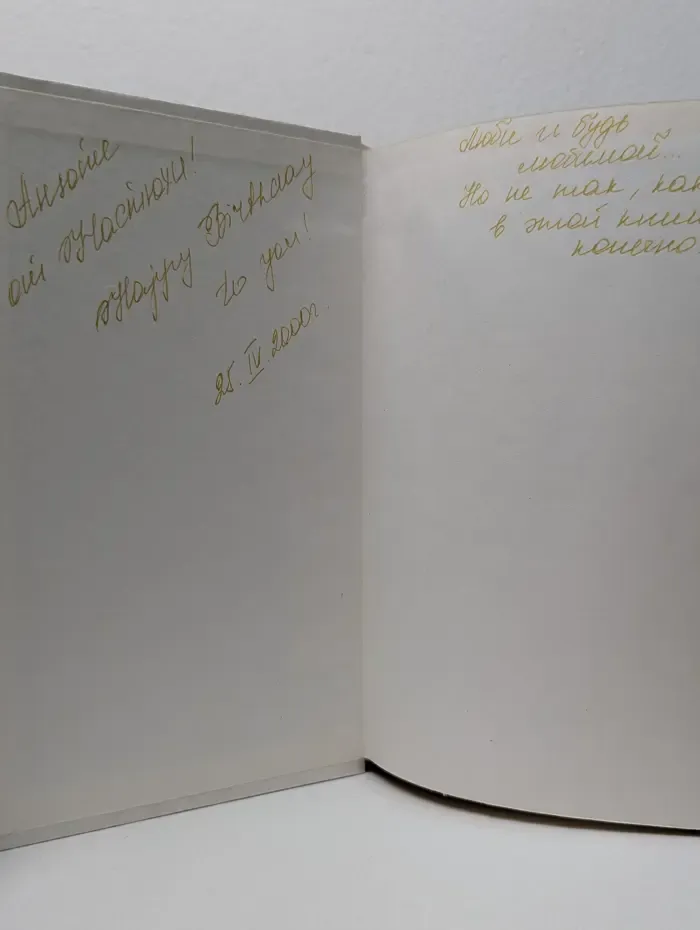 Антоне
от Настюхи!
Happy Birthday
to you!
25. IV. 2000г.
Люби и будь
любимой...
Но не так, как
в этой книге
конечно.